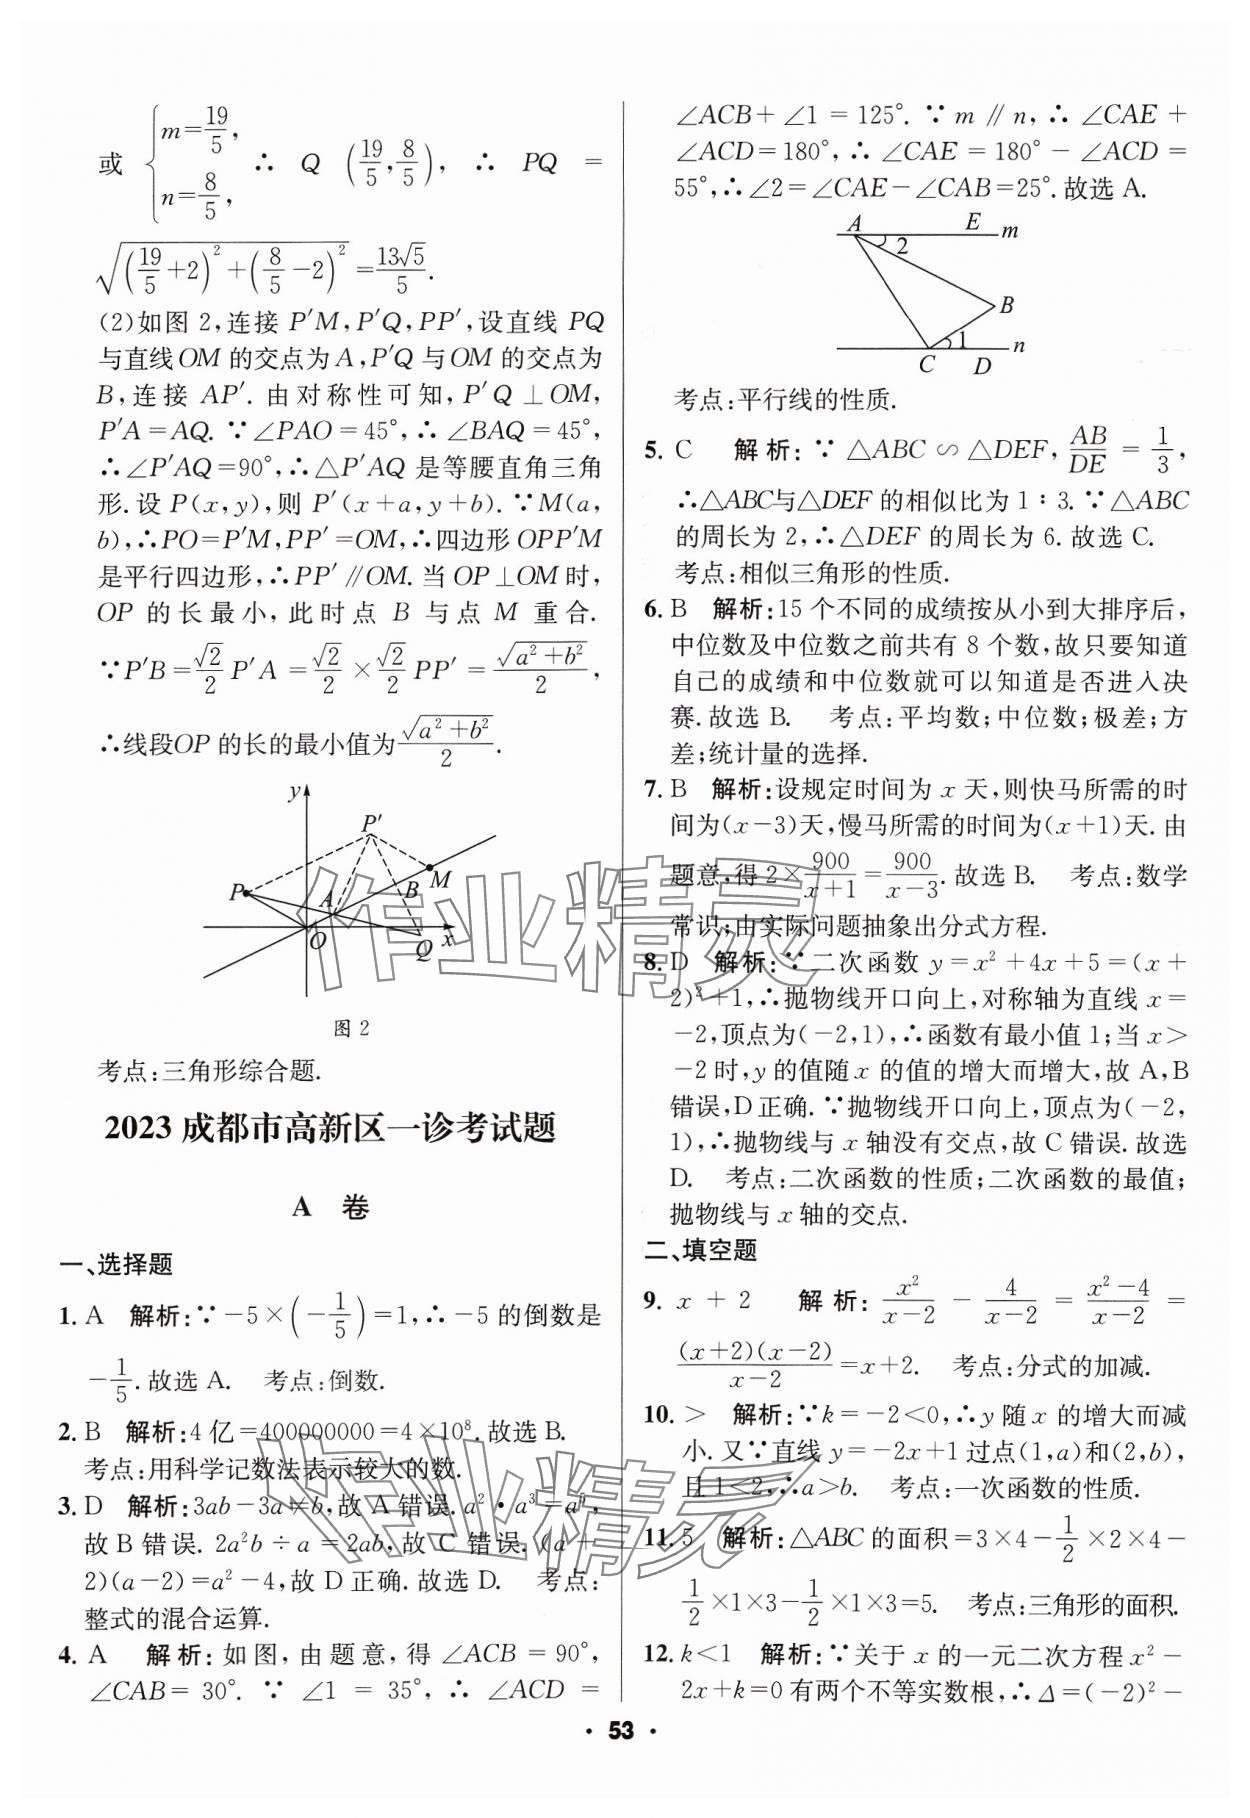 或 { m=19/5, n=8/5, ∴ Q (19/5, 8/5), ∴ PQ =
√((19/5+2)²+(8/5−2)²)=13√5/5.
(2)如图 2,连接 P′M,P′Q,PP′,设直线 PQ
与直线OM 的交点为A,P′Q 与OM 的交点为
B,连接 AP′. 由对称性可知,P′Q⊥OM,
P′A=AQ. ∵∠PAO=45°,∴∠BAQ=45°,
∴∠P′AQ=90°,∴△P′AQ 是等腰直角三角
形.设 P(x,y),则 P′(x+a,y+b).∵M(a,
b),∴PO=P′M,PP′=OM,∴四边形OPP′M
是平行四边形,∴PP′∥OM. 当OP⊥OM时,
OP 的长最小,此时点 B 与点 M 重合.
∵P′B=√2/2 P′A=√2/2×√2/2 PP′=√(a²+b²)/2,
∴线段OP 的长的最小值为√(a²+b²)/2.
y
P′
P
A
B
M
O
Q
x
图 2
考点:三角形综合题.
2023 成都市高新区一诊考试题
A 卷
一、选择题
1. A 解析:∵−5×(−1/5)=1,∴−5 的倒数是
−1/5.故选 A. 考点:倒数.
2. B 解析:4 亿=400000000=4×10⁸.故选B.
考点:用科学记数法表示较大的数.
3. D 解析:3ab−3a≠b,故 A 错误.a²·a³=a⁵,
故B错误. 2a²b÷a=2ab,故 C 错误. (a+
2)(a−2)=a²−4,故 D 正确.故选 D. 考点:
整式的混合运算.
4. A 解析:如图,由题意,得∠ACB=90°,
∠CAB=30°. ∵ ∠1=35°,∴ ∠ACD=
∠ACB+∠1=125°. ∵ m∥n,∴ ∠CAE+
∠ACD=180°,∴∠CAE=180°−∠ACD=
55°,∴∠2=∠CAE−∠CAB=25°.故选 A.
A
E
m
2
B
1
n
C
D
考点:平行线的性质.
5. C 解析:∵ △ABC∽△DEF,AB/DE=1/3,
∴△ABC与△DEF 的相似比为 1∶3.∵△ABC
的周长为 2,∴△DEF 的周长为 6.故选 C.
考点:相似三角形的性质.
6. B 解析:15 个不同的成绩按从小到大排序后,
中位数及中位数之前共有 8 个数,故只要知道
自己的成绩和中位数就可以知道是否进入决
赛.故选 B. 考点:平均数;中位数;极差;方
差;统计量的选择.
7. B 解析:设规定时间为 x 天,则快马所需的时
间为(x−3)天,慢马所需的时间为(x+1)天.由
题意,得 2×900/(x+1)=900/(x−3).故选 B. 考点:数学
常识;由实际问题抽象出分式方程.
8. D 解析:∵二次函数 y=x²+4x+5=(x+
2)²+1,∴抛物线开口向上,对称轴为直线 x=
−2,顶点为(−2,1),∴函数有最小值 1;当 x>
−2时,y的值随x 的值的增大而增大,故 A,B
错误,D正确.∵抛物线开口向上,顶点为(−2,
1),∴抛物线与 x 轴没有交点,故 C 错误.故选
D. 考点:二次函数的性质;二次函数的最值;
抛物线与 x 轴的交点.
二、填空题
9. x+2 解析:x²/(x−2)−4/(x−2)=(x²−4)/(x−2)=
(x+2)(x−2)/(x−2)=x+2. 考点:分式的加减.
10. > 解析:∵k=−2<0,∴y 随 x 的增大而减
小.又∵直线 y=−2x+1过点(1,a)和(2,b),
且 1<2,∴a>b. 考点:一次函数的性质.
11. 5 解析:△ABC 的面积=3×4−1/2×2×4−
1/2×1×3−1/2×1×3=5. 考点:三角形的面积.
12. k<1 解析:∵关于 x 的一元二次方程 x²−
2x+k=0有两个不等实数根,∴Δ=(−2)²−
· 53 ·
作业精灵
作业精灵